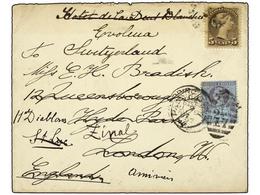 Hotel de la Dent Blanche
Evolena
To Switzerland
Miss E. H. Bradish.
12 Queensborough
11 Diablerets Hyde Park
St Luc Zinal
London W.
England Anniviers